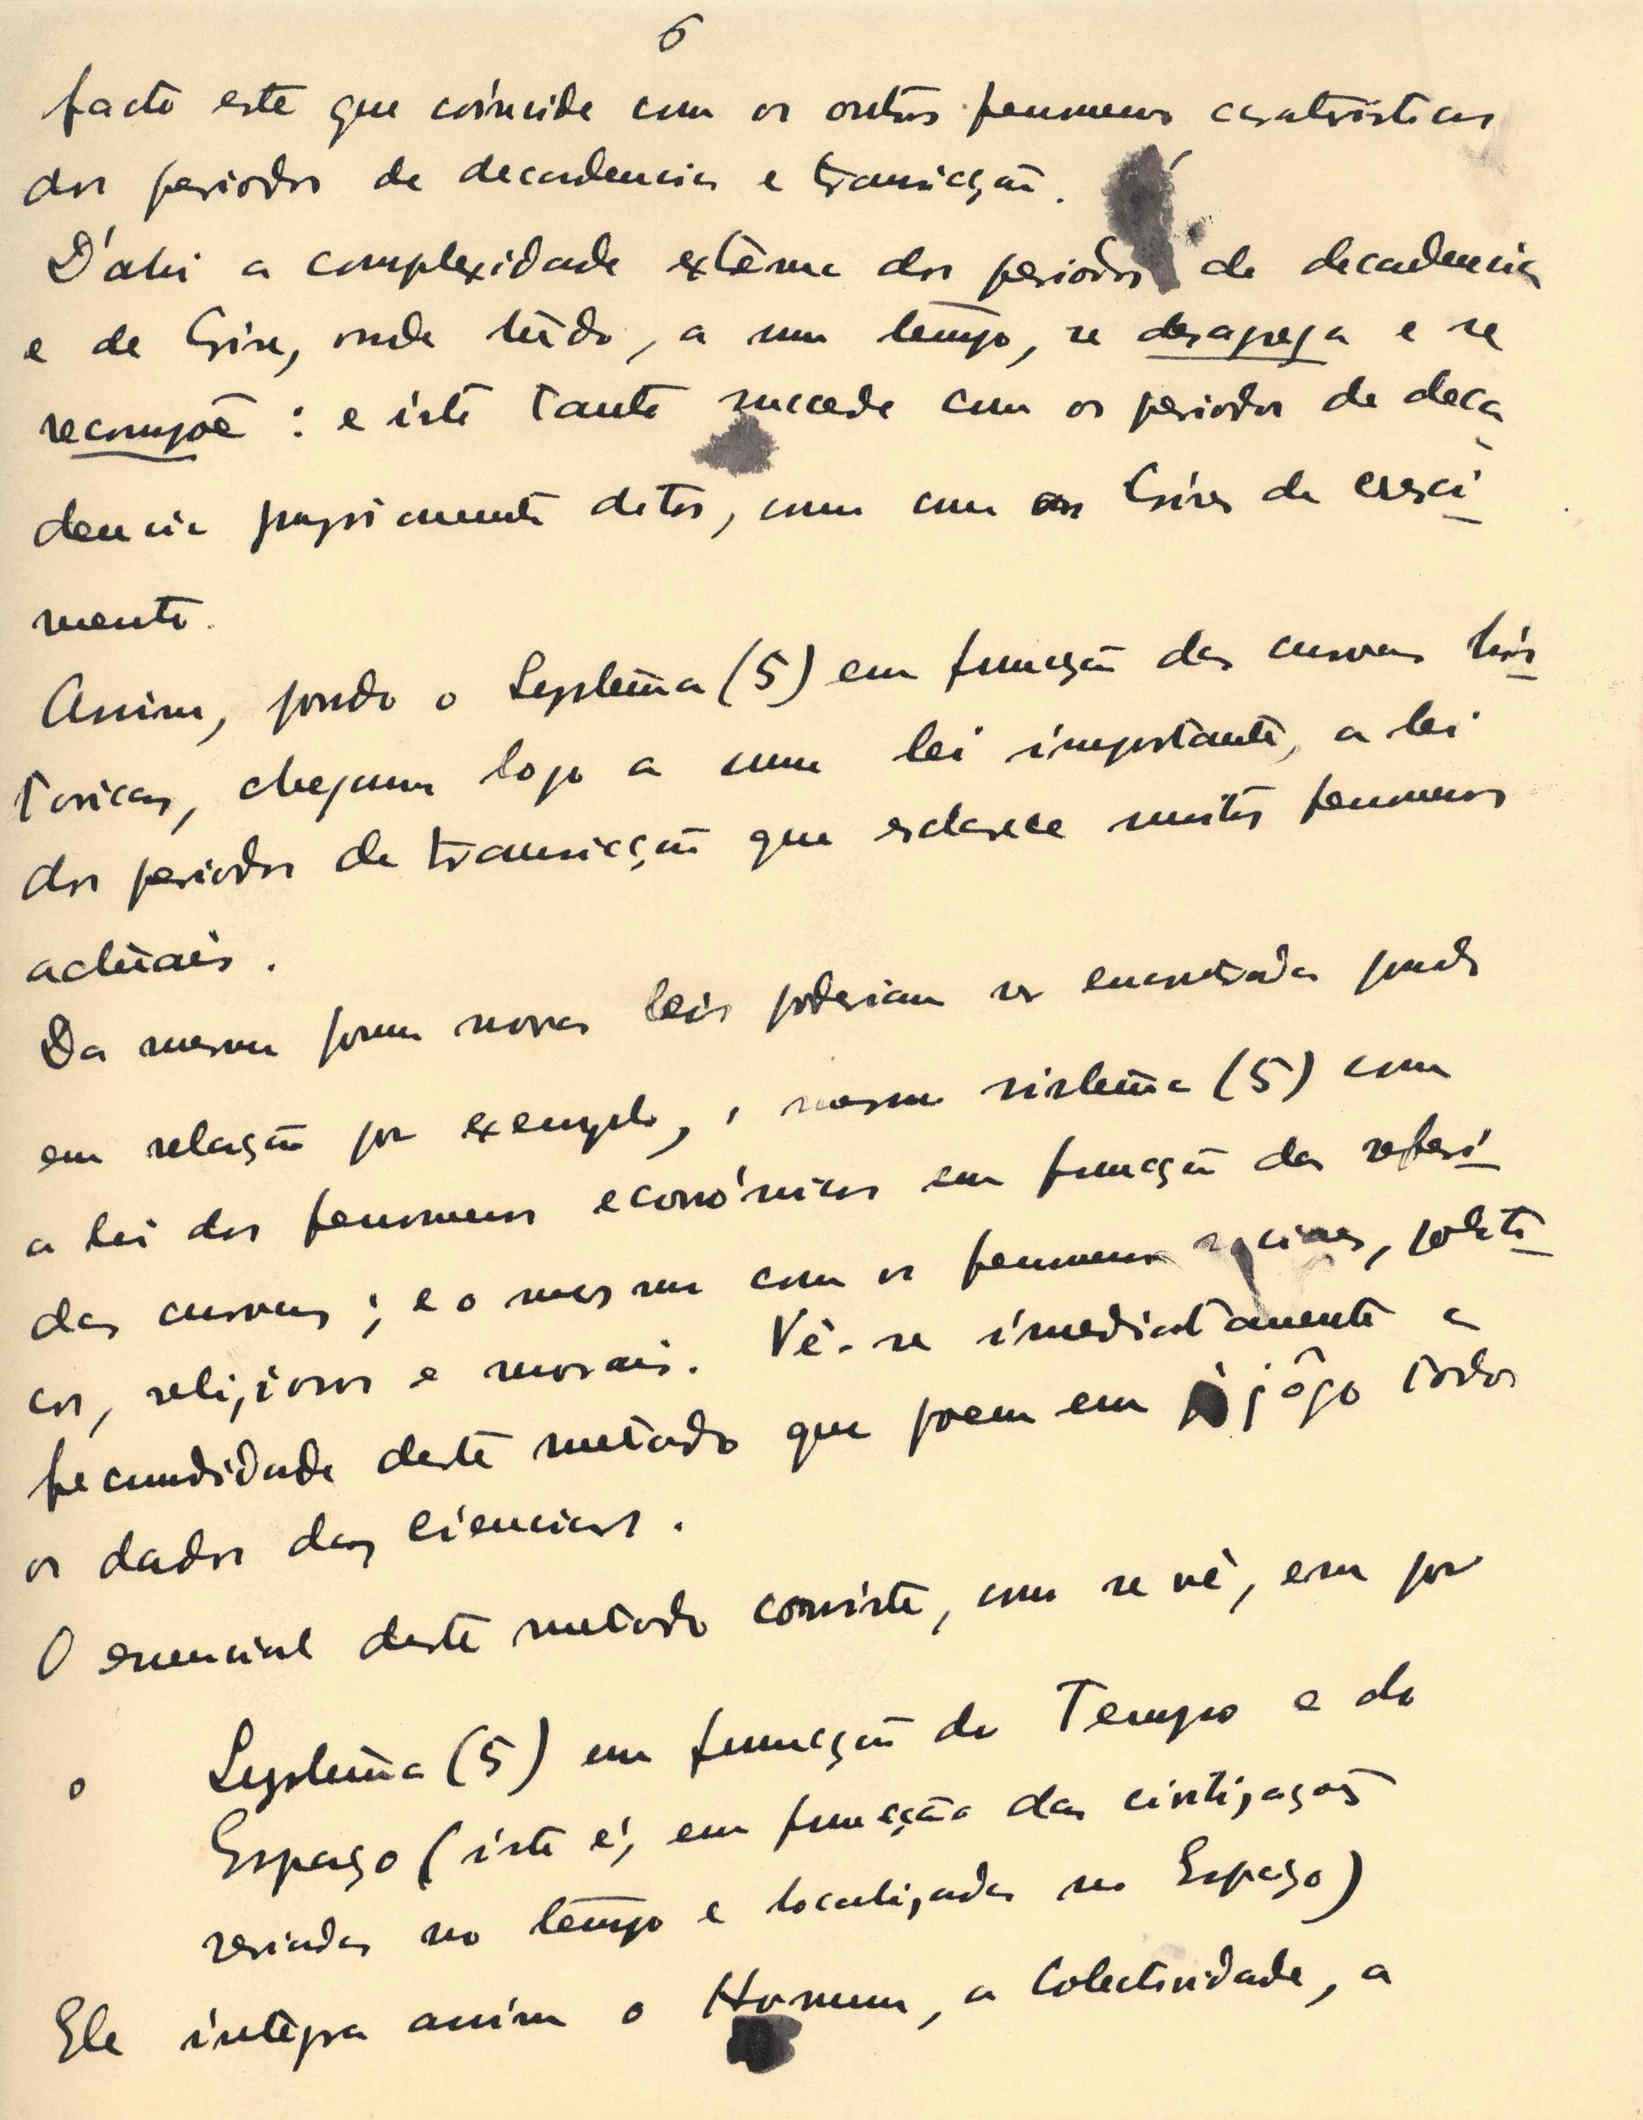 6
facto este que coincide com os outros fenomenos caracteristicos
dos periodos de decadencia e transicção.
D'ahi a complexidade extrema dos periodos de decadencia
e de Crise, onde tudo, a um tempo, se desagrega e se
recompõe : e isto tanto succede com os periodos de deca
dencia propriamente ditos, como com as Crises de cresci
mento.
Assim, pondo o Systema (5) em funcção das curvas his
toricas, chegamos logo a uma lei importante, a lei
dos periodos de transicção que esclarece muitos fenomenos
actuais.
Da mesma forma novas leis poderiam ser encontradas pondo
em relação por exemplo, o nosso sistema (5) com
a lei dos fenomenos económicos em funcção das referi
das curvas ; e o mesmo com os fenomenos sociaes, politi
cos, religiosos e morais. Vê-se imediatamente a
fecundidade deste metodo que poem em jôgo todos
os dados das ciencias.
O essencial deste metodo consiste, como se vê, em por
o Systema (5) em funcção do Tempo e do
Espaço (isto é, em funcção das civilizações
seriadas no tempo e localizadas no Espaço)
Ele integra assim o Homem, a Colectividade, a